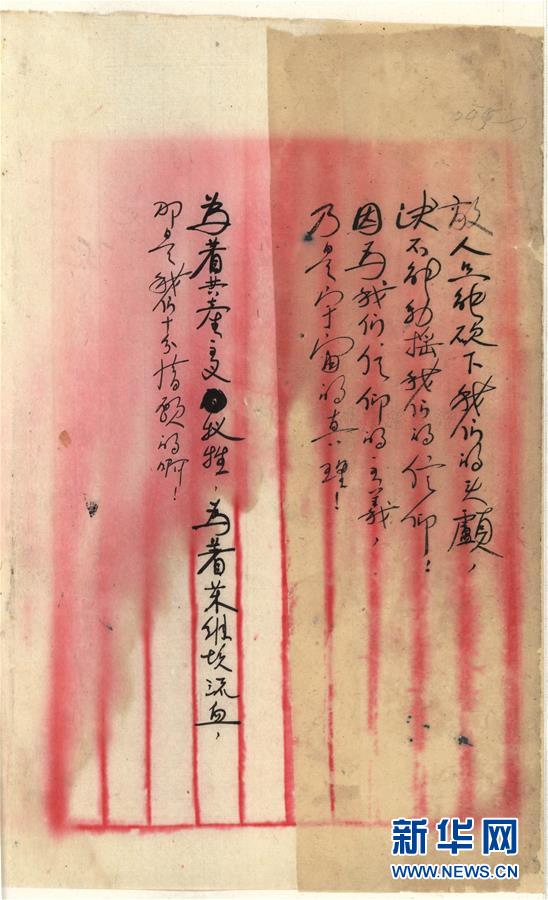 敌人只能砍下我们的头顱，
决不能动摇我们的信仰！
因为我们信仰的主義，
乃是宇宙的真理！
為着共產主义牺牲，為着苏维埃流血，
那是我们十分情愿的啊！
新华网
WWW.NEWS.CN